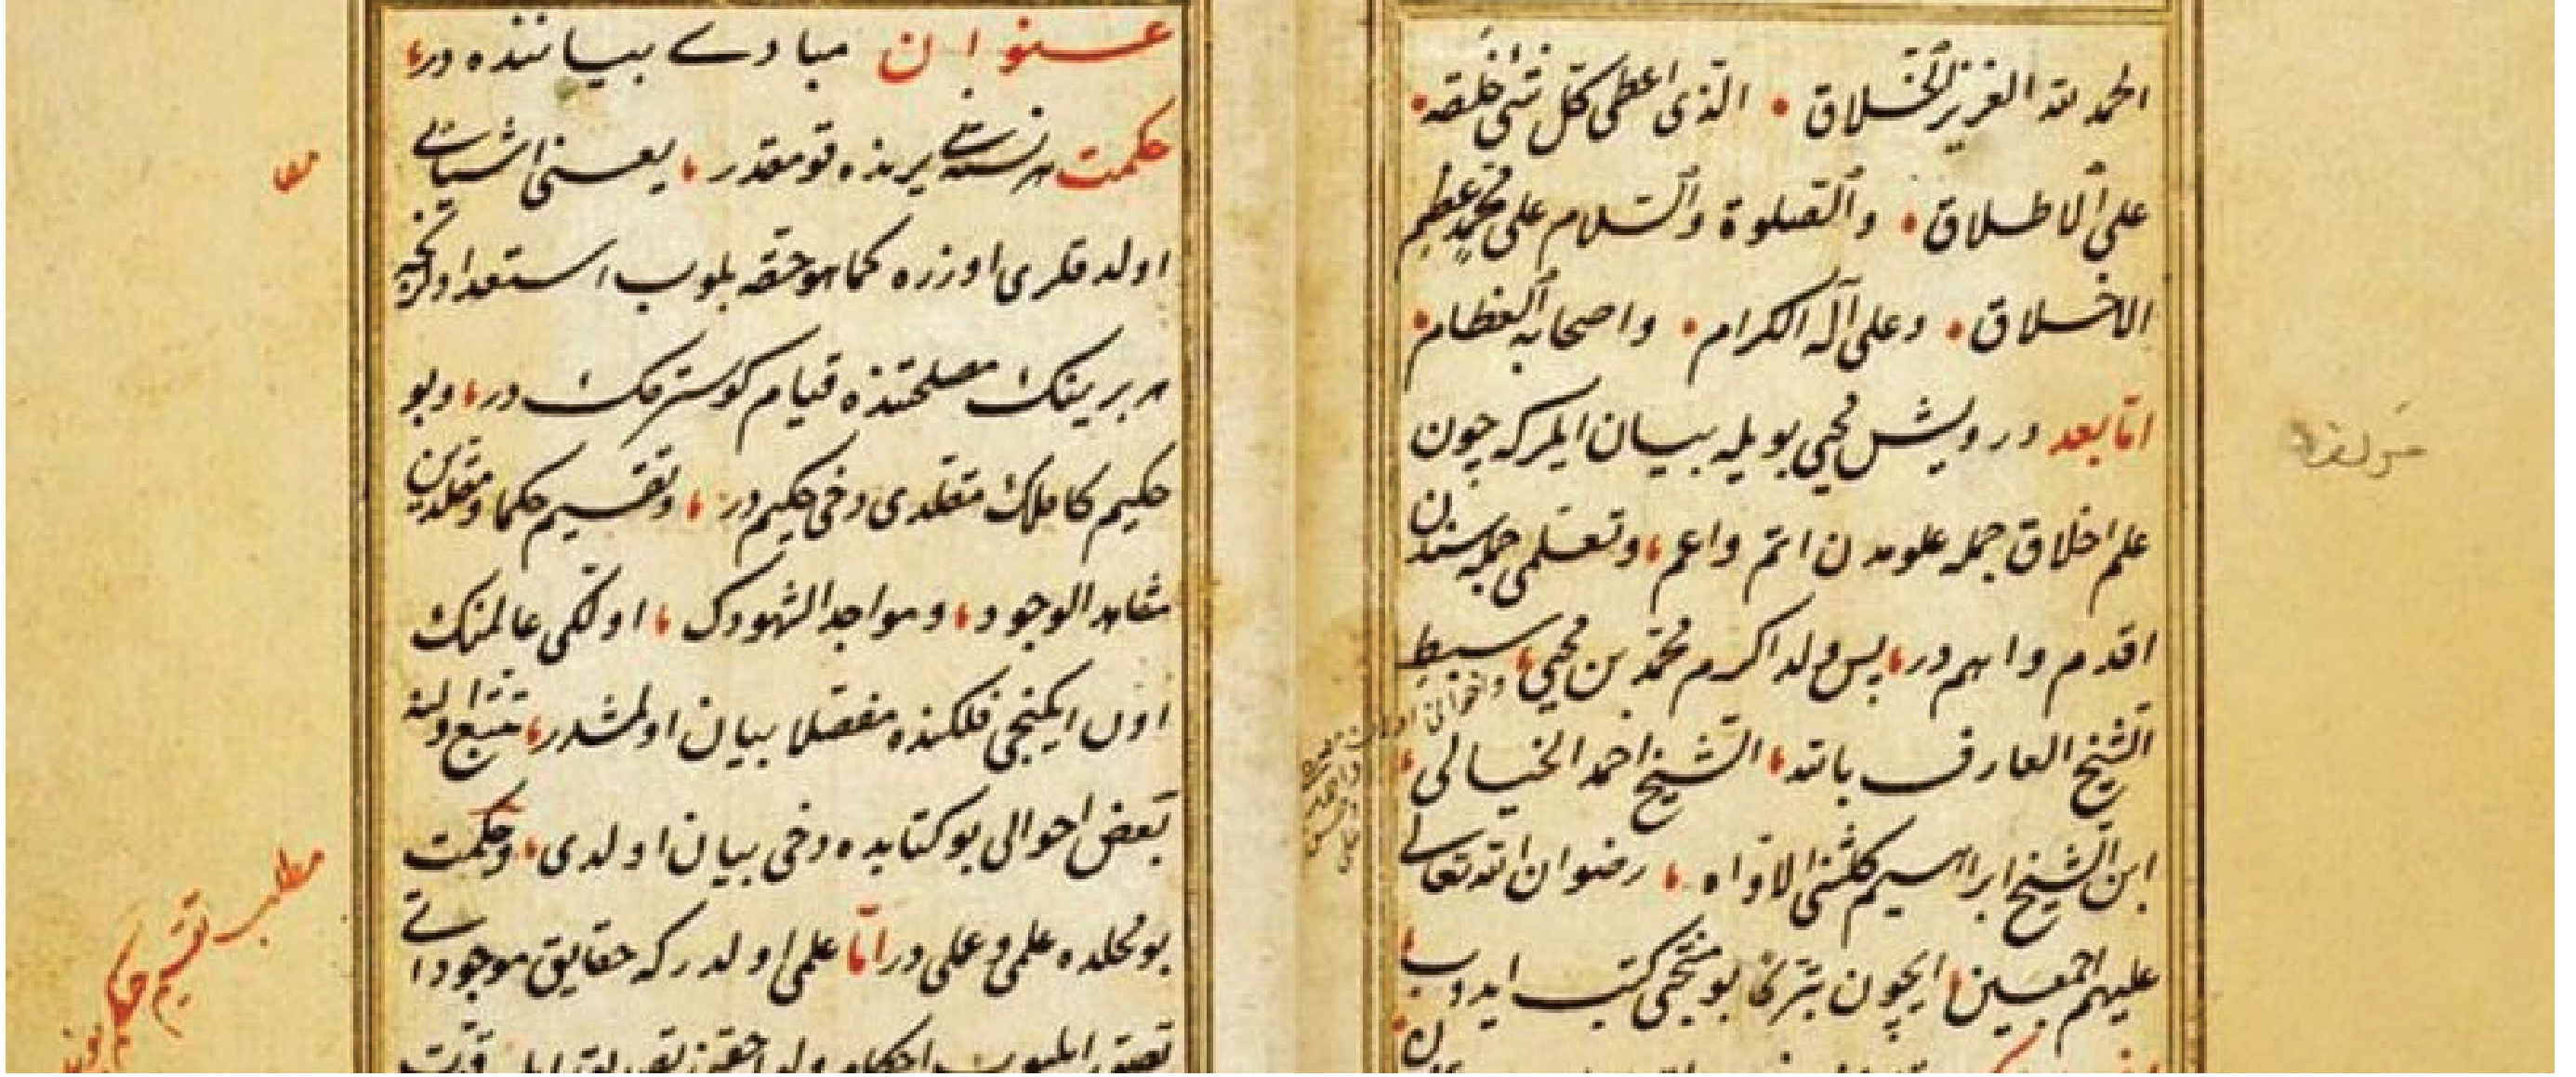 الحمد لله العزيز الخلاق الذى اعطى كل شئ خلقه
على الاطلاق والصلوة والسلام على محمد عظيم
الاخلاق وعلى آله الكرام واصحابه العظام
اما بعد درويش محيي بويله بيان ايلر كه چون
علم اخلاق جمله علومدن اتم واعم وتعلمى جمله سندن
اقدم واهم در پس ولد اكرم محمد بن محيي سبط
الشيخ العارف بالله الشيخ احمد الخيالى
ابن الشيخ ابراهيم كلشنى الاواه رضوان الله تعالى
عليهم اجمعين ايچون بو منتخبى كتب ايدوب
عنوان مبادى بياننده در
حكمت هر نسنه يى يرنده قومقدر يعنى اشيايى
اولدقلرى اوزره كما هو حقه بلوب استعدادلرنجه
هر برينك مصلحتنده قيام كوسترمك در وبو
حكيم كاملك مقلدى دخى حكيم در وتقسيم حكما ومقلدين
مشاهد الوجود ومواجد الشهودك اولكى عالمنك
اون ايكنجى فلكنده مفصلا بيان اولمشدر تتبع اولنه
بعض احوالى بو كتابده دخى بيان اولدى وحكمت
بو محلده علمى وعملى در اما علمى اولدر كه حقايق موجوداتى
مطلب تقسيم حكما